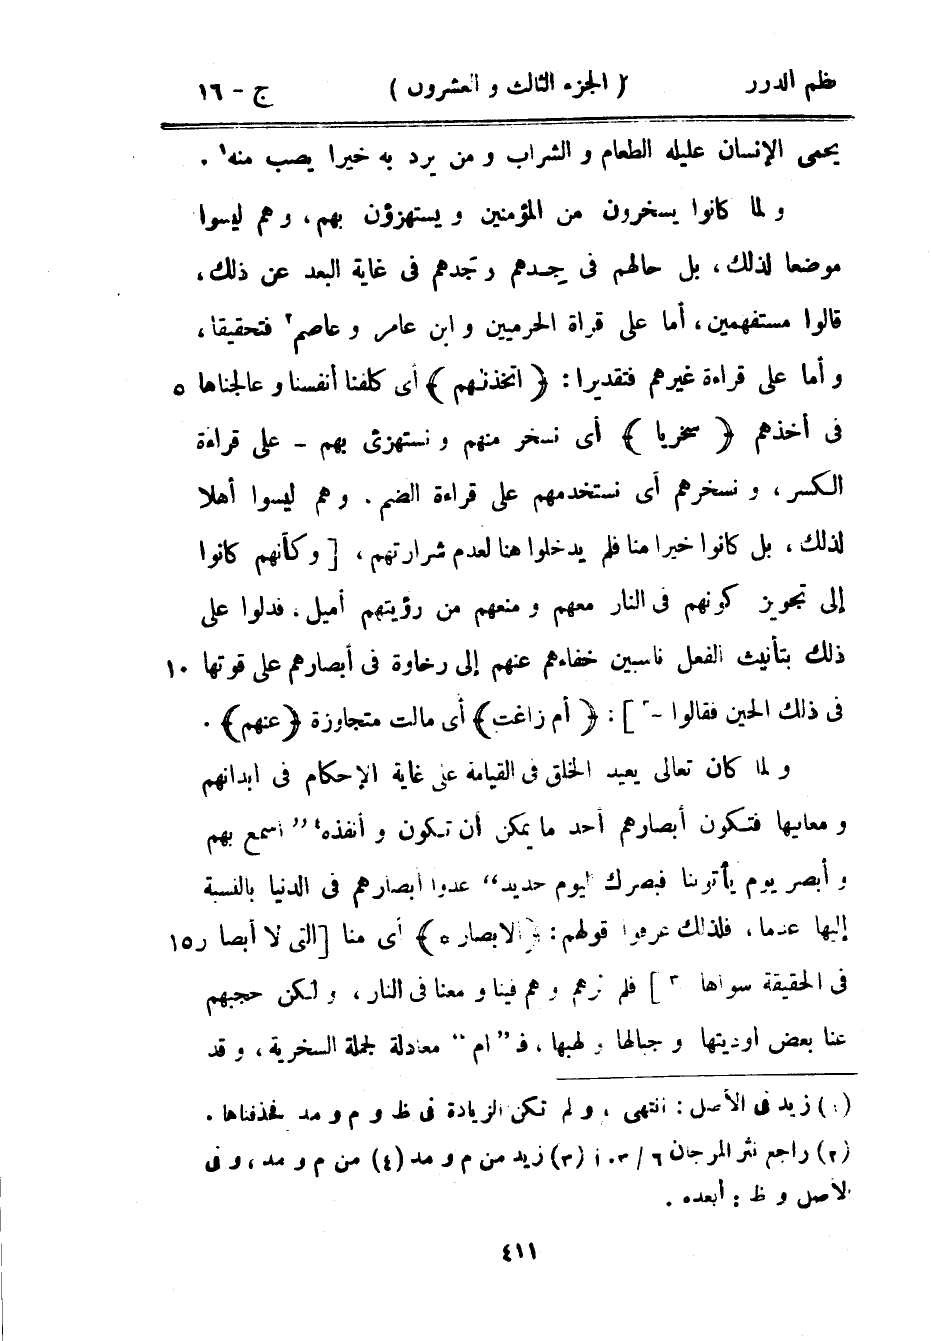 نظم الدرر ( الجزء الثالث و العشرون ) ج - ١٦
يحمى الإنسان عليله الطعام و الشراب و من يرد به خيرا يصب منه١ .
و لما كانوا يسخرون من المؤمنين و يستهزؤن بهم ، و هم ليسوا
موضعا لذلك ، بل حالهم فى جدهم و جدهم فى غاية البعد عن ذلك ،
قالوا مستفهمين ، أما على قراة الحرميين و ابن عامر و عاصم٢ فتحقيقا ،
و أما على قراءة غيرهم فتقديرا : ﴿ اتخذنٰهم ﴾ أى كلفنا أنفسنا و عالجناها ٥
فى أخذهم ﴿ سخريا ﴾ أى نسخر منهم و نستهزئ بهم – على قراءة
الكسر ، و نسخرهم أى نستخدمهم على قراءة الضم . و هم ليسوا أهلا
لذلك ، بل كانوا خيرا منا فلم يدخلوا هنا لعدم شرارتهم ، [ و كأنهم كانوا
إلى تجويز كونهم فى النار معهم و منعهم من رؤيتهم أميل ، فدلوا على
ذلك بتأنيث الفعل ناسبين خفاءهم عنهم إلى رخاوة فى أبصارهم على قوتها ١٠
فى ذلك الحين فقالوا –٣ ] : ﴿ أم زاغت ﴾ أى مالت متجاوزة ﴿ عنهم ﴾ .
و لما كان تعالى يعيد الخلق فى القيامة على غاية الإحكام فى ابدانهم
و معانيها فتكون أبصارهم أحد ما يمكن أن تكون و أنفذه٤ ” اسمع بهم
و أبصر يوم يأتوننا فبصرك اليوم حديد “ عدوا أبصارهم فى الدنيا بالنسبة
إليها عدما ، فلذلك عرفوا قولهم : ﴿ الابصار ه ﴾ أى منا [ التى لا أبصار ١٥
فى الحقيقة سواها ٣ ] فلم نرهم و هم فينا و معنا فى النار ، و لكن حجبهم
عنا بعض اوديتها و جبالها و لهبها ، فـ ” ام “ معادلة لجملة السخرية ، و قد
(١) زيد فى الأصل : انتهى ، و لم تكن الزيادة فى ظ و م و مد فحذفناها .
(٢) راجع نثر المرجان ٦ / ٣٠١ (٣) زيد من م و مد (٤) من م و مد ، و فى
الأصل و ظ : أبعده .
٤١١